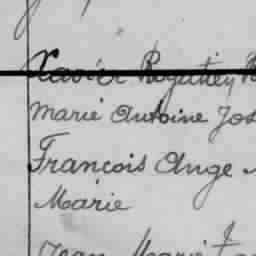 Xavier
Marie Antoine Jos
François Ange
Marie
Jean Marie